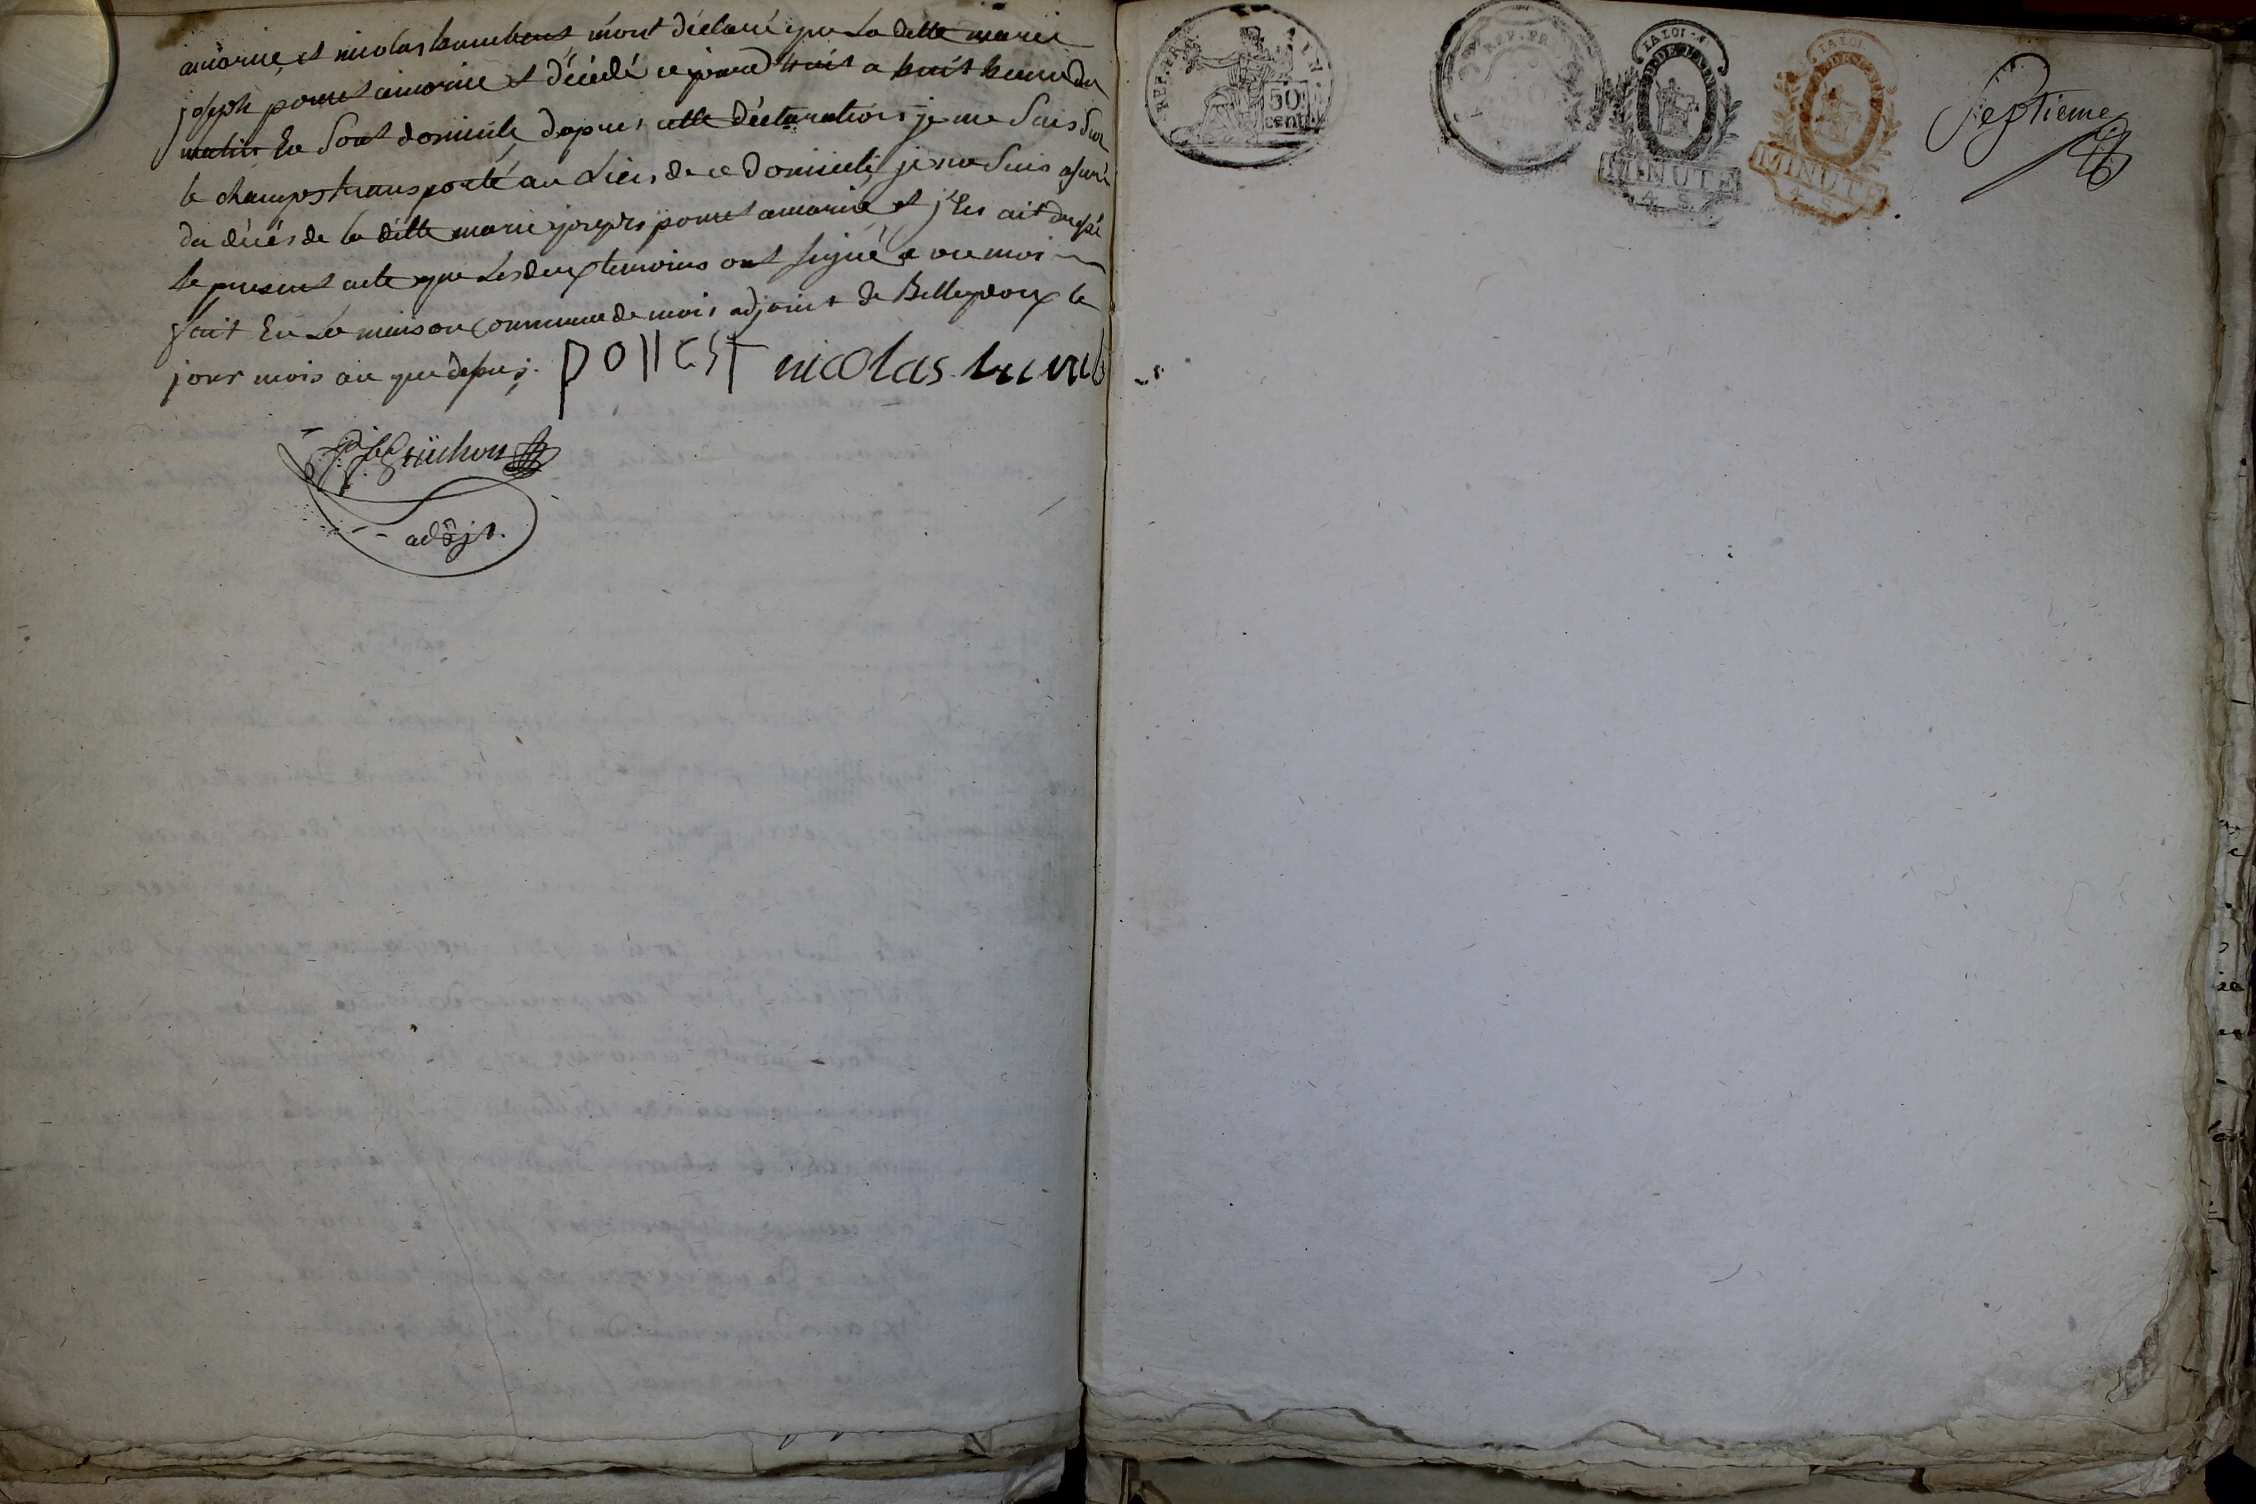 amorice, et nicolas humbert m'ont déclaré que La ditte marie
joseph poncet amorice et décédé ce jourd huit a huit heure du
matin En sont domicile, dapres cette déclaration je me Suis Sur
le champs transporté au Lieu de ce domicile, je me Suis assuré
du décés de la ditte marie joseph poncet amorice et j'En ait dressé
le present acte que Les deux temoins ont signé avec moi
fait En La maison Commune de mois adjoint de Belleydoux le
jour mois an que depus.
poncet nicolas humb
adojt.
REP. FRA.
50
cent
REP. FR
LA LOI
MINUTE
4 S
LA LOI
MINUTE
4 S
Septieme